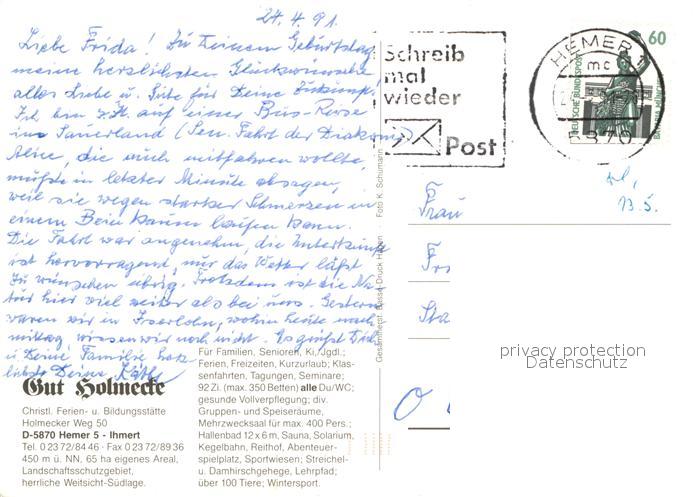 24.4.91.
Liebe Frida! Zu Deinem Geburtstag
meine herzlichsten Glückwünsche
alles Liebe u. Gute für Deine Zukunft.
Ich bin z.Zt. auf einer Bus-Reise
ins Sauerland (Sen. Fahrt der Diakonie)
Alice, die auch mitfahren wollte,
mußte in letzter Minute absagen,
weil sie wegen starker Schmerzen in
einem Bein kaum laufen kann.
Die Fahrt war angenehm, die Unterkunft
ist hervorragend, nur das Wetter läßt
zu wünschen übrig. Trotzdem ist die Na-
tur hier viel weiter als bei uns. Gestern
waren wir in Iserlohn, wohin heute nach-
mittag, wissen wir noch nicht. Es grüßt Dich
u. Deine Familie
Deine Käthe
Gut Holmecke
Christl. Ferien- u. Bildungsstätte
Holmecker Weg 50
D-5870 Hemer 5 - Ihmert
Tel. 0 23 72/84 46 · Fax 0 23 72/89 36
450 m ü. NN, 65 ha eigenes Areal,
Landschaftsschutzgebiet,
herrliche Weitsicht-Südlage.
Für Familien, Senioren, Ki./Jgdl.;
Ferien, Freizeiten, Kurzurlaub; Klas-
senfahrten, Tagungen, Seminare;
92 Zi. (max. 350 Betten) alle Du/WC;
gesunde Vollverpflegung; div.
Gruppen- und Speiseräume,
Mehrzwecksaal für max. 400 Pers.;
Hallenbad 12 x 6 m, Sauna, Solarium,
Kegelbahn, Reithof, Abenteuer-
spielplatz, Sportwiesen; Streichel-
u. Damhirschgehege, Lehrpfad;
über 100 Tiere; Wintersport.
Foto K. Schumann
Schreib
mal
wieder
Post
HEMER 1
mc
5870
60
DEUTSCHE BUNDESPOST
13.5.
Frau
privacy protection
Datenschutz